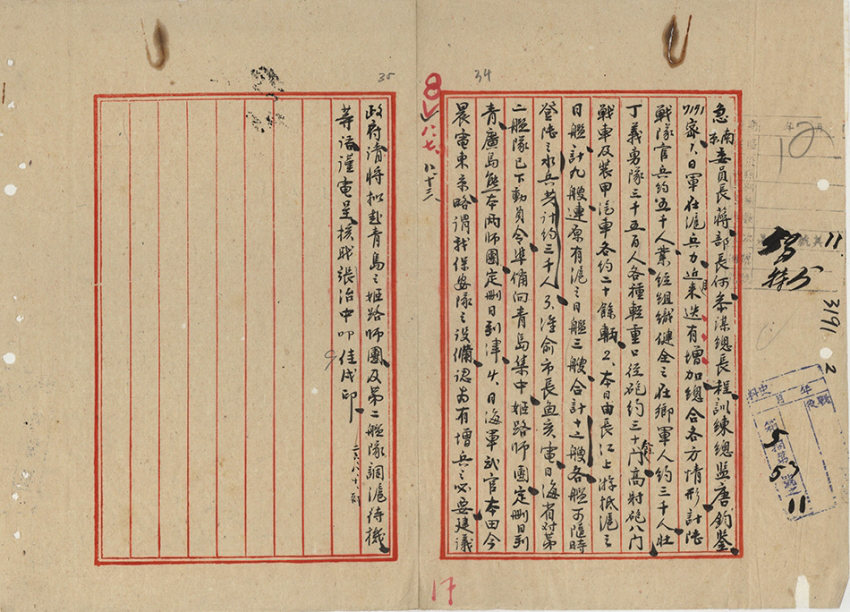 急 南 委員長蔣部長何參謀總長程訓練總監唐鈞鑒
密 1、日軍在滬兵力近來迭有增加總合各方情形計陸
戰隊官兵約五千人業經組織健全之在鄉軍人約三千人壯
丁義勇隊三千五百人各種輕重口徑砲約三十門高射砲八門
戰車及裝甲汽車各約二十餘輛 2、本日由長江上游抵滬之
日艦計九艘連原有滬之日艦三艘合計十二艘各艦可隨時
登陸之水兵共計約三千人 3、准俞市長魚亥電日海省對第
二艦隊已下動員令準備向青島集中姬路師團定刪日到
青廣島熊本兩師團定刪日到津 4、日海軍武官本田今
晨電東京略謂我保安隊之設備認為有增兵之必要建議
政府請將擬赴青島之姬路師團及第二艦隊調滬待機
等語謹電呈核職張治中叩佳戌印
34
35
17
11
3191
2
5
53
11